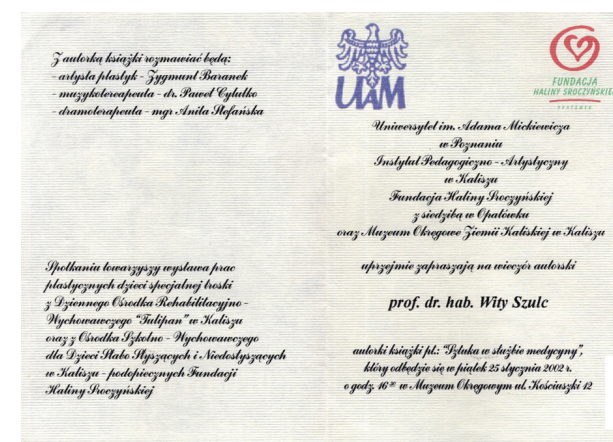 Z autorką książki rozmawiać będą:
- artysta plastyk - Zygmunt Baranek
- muzykoterapeuta - dr. Paweł Cylulko
- dramoterapeuta - mgr Anita Stefańska
Spotkaniu towarzyszy wystawa prac
plastycznych dzieci specjalnej troski
z Dziennego Ośrodka Rehabilitacyjno -
Wychowawczego "Tulipan" w Kaliszu
oraz z Ośrodka Szkolno - Wychowawczego
dla Dzieci Słabo Słyszących i Niedosłyszących
w Kaliszu - podopiecznych Fundacji
Haliny Sroczyńskiej
UAM
FUNDACJA
HALINY SROCZYŃSKIEJ
Uniwersytet im. Adama Mickiewicza
w Poznaniu
Instytut Pedagogiczno - Artystyczny
w Kaliszu
Fundacja Haliny Sroczyńskiej
z siedzibą w Opatówku
oraz Muzeum Okręgowe Ziemii Kaliskiej w Kaliszu
uprzejmie zapraszają na wieczór autorski
prof. dr. hab. Wity Szulc
autorki książki pt.: "Sztuka w służbie medycyny",
który odbędzie się w piątek 25 stycznia 2002 r.
o godz. 16³⁰ w Muzeum Okręgowym ul. Kościuszki 12